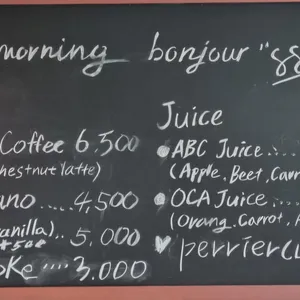 morning bonjour "
Coffee 6.500
(chestnut latte)
ano ..... 4,500
anilla).. 5,000
+500
oke .... 3.000
Juice
ABC Juice....
(Apple, Beet, Carr
OCA Juice....
(Orang, Carrot, A
perrier (L